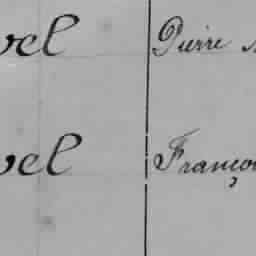 vel Pierre
vel Franço